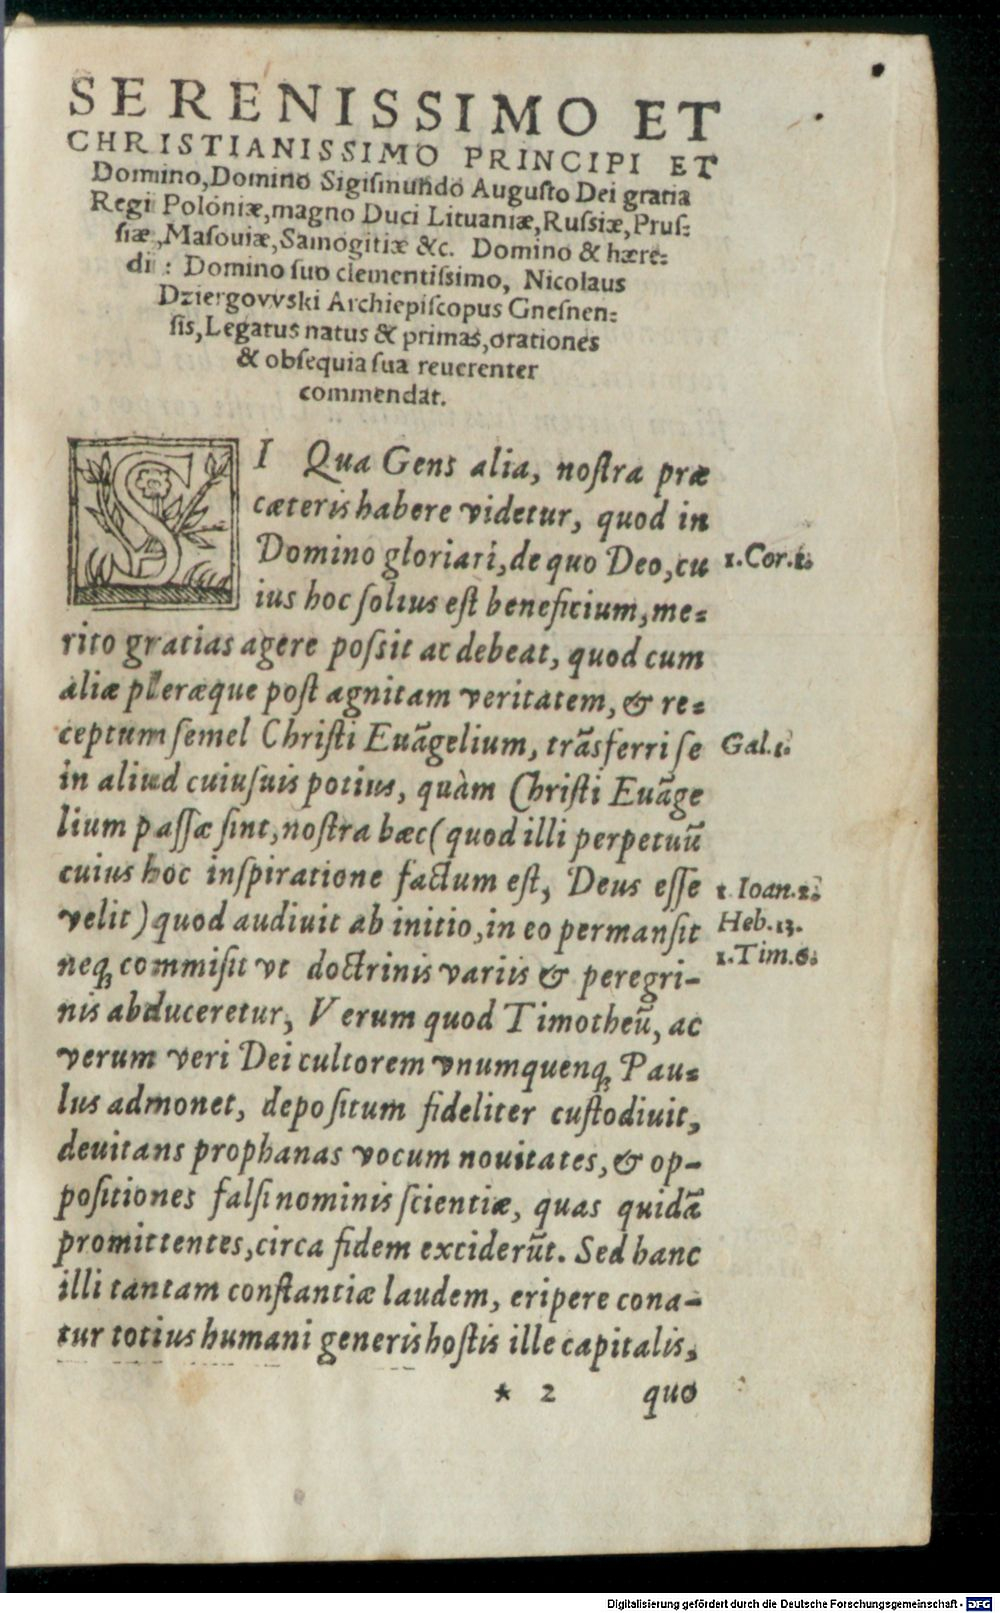 SERENISSIMO ET
CHRISTIANISSIMO PRINCIPI ET
Domino, Domino Sigiſmundo Auguſto Dei gratia
Regi Poloniæ, magno Duci Lituaniæ, Ruſsiæ, Pruſ-
ſiæ, Maſouiæ, Samogitiæ &c. Domino & hære-
di: Domino ſuo clementiſsimo, Nicolaus
Dziergovvski Archiepiſcopus Gneſnen-
ſis, Legatus natus & primas, orationes
& obſequia ſua reuerenter
commendat.
SI Qua Gens alia, noſtra præ
cæteris habere videtur, quod in
Domino gloriari, de quo Deo, cu
1.Cor.1.
ius hoc ſolius eſt beneficium, me-
rito gratias agere poſsit ac debeat, quod cum
aliæ pleræque poſt agnitam veritatem, & re-
ceptum ſemel Chriſti Euãgelium, trãsferri ſe
Gal.1.
in aliud cuiuſuis potius, quàm Chriſti Euãge
lium paſſæ ſint, noſtra hæc (quod illi perpetuũ
cuius hoc inſpiratione factum eſt, Deus eſſe
1. Ioan.2.
velit) quod audiuit ab initio, in eo permanſit
Heb.13.
neq; commiſit vt doctrinis variis & peregri-
1.Tim.6.
nis abduceretur, Verum quod Timotheũ, ac
verum veri Dei cultorem vnumquenq; Pau-
lus admonet, depoſitum fideliter cuſtodiuit,
deuitans prophanas vocum nouitates, & op-
poſitiones falſi nominis ſcientiæ, quas quidã
promittentes, circa fidem exciderũt. Sed hanc
illi tantam conſtantiæ laudem, eripere cona-
tur totius humani generis hoſtis ille capitalis,
* 2 quo
Digitalisierung gefördert durch die Deutsche Forschungsgemeinschaft - DFG